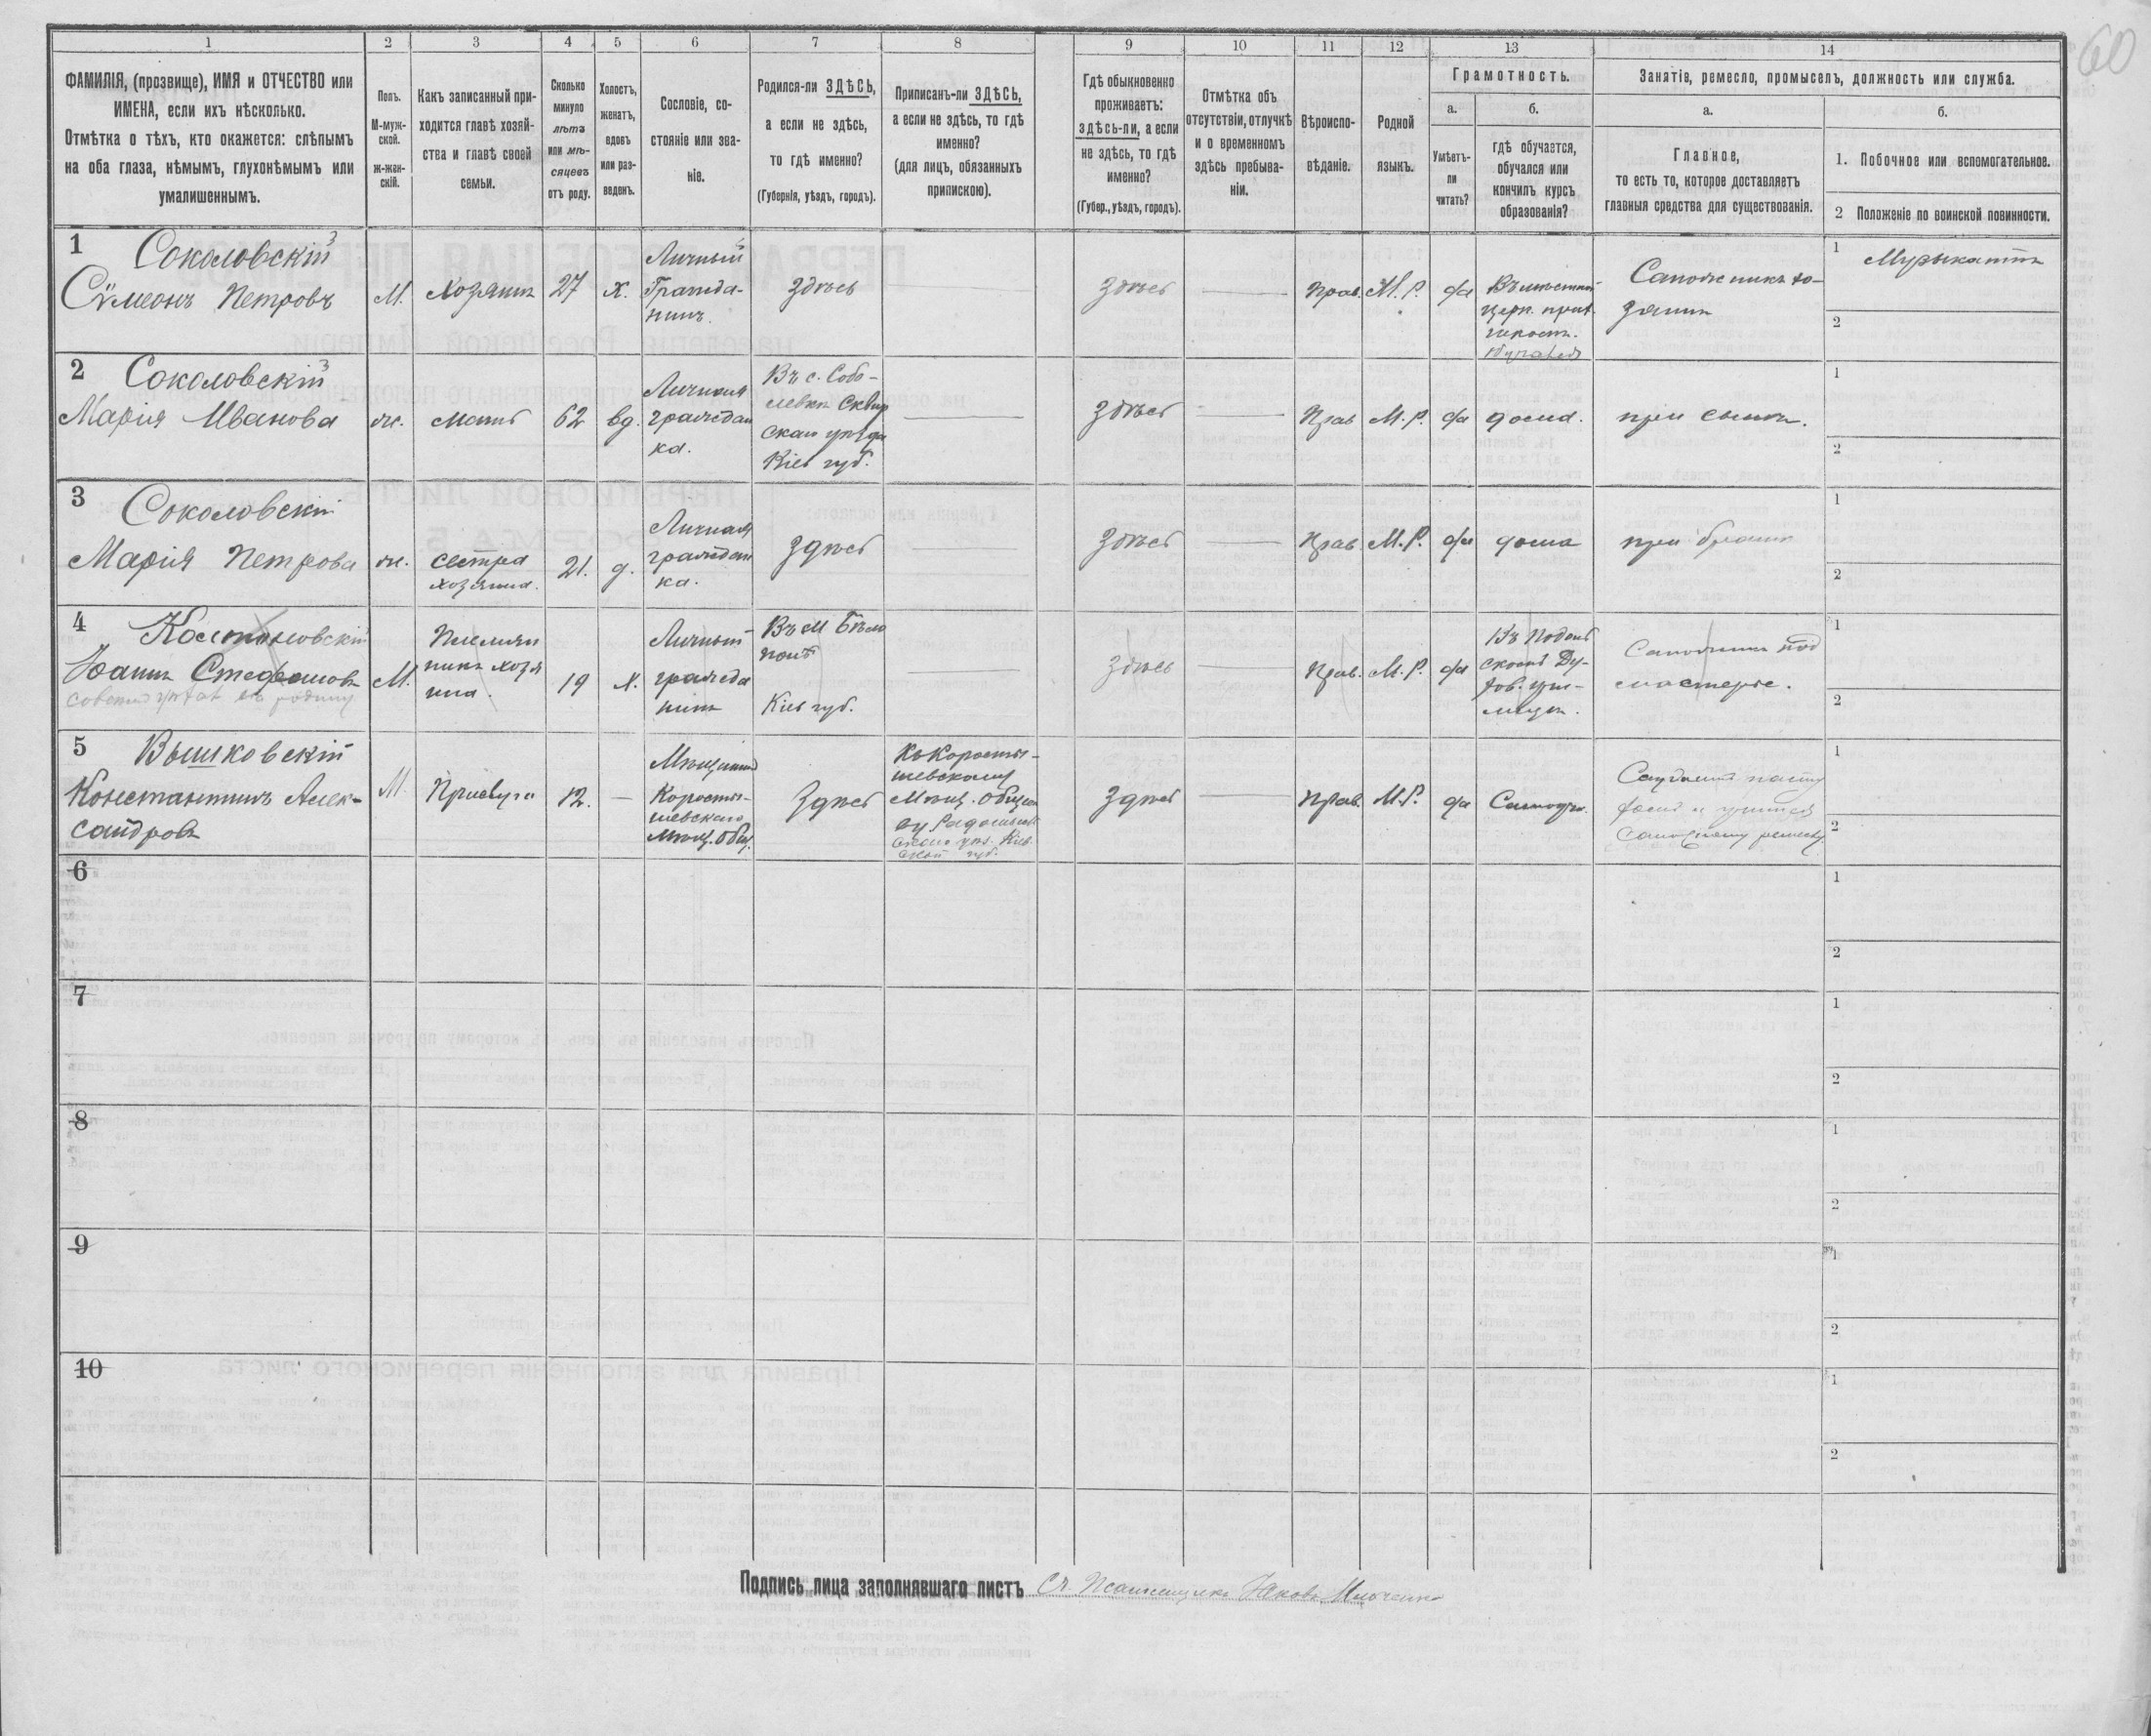 60
1
2
3
4
5
6
7
8
9
10
11
12
13
14
ФАМИЛІЯ, (прозвище), ИМЯ и ОТЧЕСТВО или
ИМЕНА, если ихъ нѣсколько.
Отмѣтка о тѣхъ, кто окажется: слѣпымъ
на оба глаза, нѣмымъ, глухонѣмымъ или
умалишеннымъ.
Полъ.
М-муж-
ской.
ж-жен-
скій.
Какъ записанный при-
ходится главѣ хозяй-
ства и главѣ своей
семьи.
Сколько
минуло
лѣтъ
или мѣ-
сяцевъ
отъ роду.
Холостъ,
женатъ,
вдовъ
или раз-
веденъ.
Сословіе, со-
стояніе или зва-
ніе.
Родился-ли ЗДѢСЬ,
а если не здѣсь,
то гдѣ именно?
(Губернія, уѣздъ, городъ).
Приписанъ-ли ЗДѢСЬ,
а если не здѣсь, то гдѣ
именно?
(для лицъ, обязанныхъ
припискою).
Гдѣ обыкновенно
проживаетъ:
здѣсь-ли, а если
не здѣсь, то гдѣ
именно?
(Губер., уѣздъ, городъ).
Отмѣтка объ
отсутствіи, отлучкѣ
и о временномъ
здѣсь пребыва-
ніи.
Вѣроиспо-
вѣданіе.
Родной
языкъ.
Грамотность.
а.
б.
Умѣетъ-
ли
читать?
гдѣ обучается,
обучался или
кончилъ курсъ
образованія?
Занятіе, ремесло, промыселъ, должность или служба.
а.
б.
Главное,
то есть то, которое доставляетъ
главныя средства для существованія.
1. Побочное или вспомогательное.
2 Положеніе по воинской повинности.
1 Соколовскій
Сѵмеонъ Петровъ
М.
Хозяинъ
27
Х.
Личный
Гражда-
нинъ.
Здѣсь
Здѣсь
Прав.
М. Р.
да
Сапожникъ хо-
зяинъ
1 Музыкантъ
2
2 Соколовскій
Марія Иванова
ж.
мать
62
вд.
Личная
граждан
ка.
Въ с. Собо-
левкѣ Сквир
скаго уѣзда
Кіев губ.
Здѣсь
Прав
М. Р.
да
дома.
при сынѣ.
1
2
3 Соколовскій
Марія Петрова
ж.
сестра
хозяина.
21.
д.
Личная
граждан
ка.
Здѣсь
Здѣсь
Прав.
М. Р.
да
дома
при братѣ
1
2
4
Іоаннъ Стефановъ
М.
Племян
никъ хозя
ина.
19
Х.
Личный
гражда
нинъ
Кіев губ.
Здѣсь
Прав.
М. Р.
да
Сапожникъ под
мастерье.
1
2
5 Вышковскій
Константинъ Алек-
сандровъ
М.
Прислуга
12.
—
Мѣщанинъ
Корости-
шевскаго
Мѣщ. Общ.
Здѣсь
Къ Корости-
шевскому
Мѣщ. Общес
ву Радомысль
скаго уѣз. Кіев
ской губ.
Здѣсь
Прав.
М. Р.
да
Самоуч.
1
2
6
1
2
7
1
2
8
1
2
9
1
2
10
1
2
Подпись лица заполнявшаго листъ